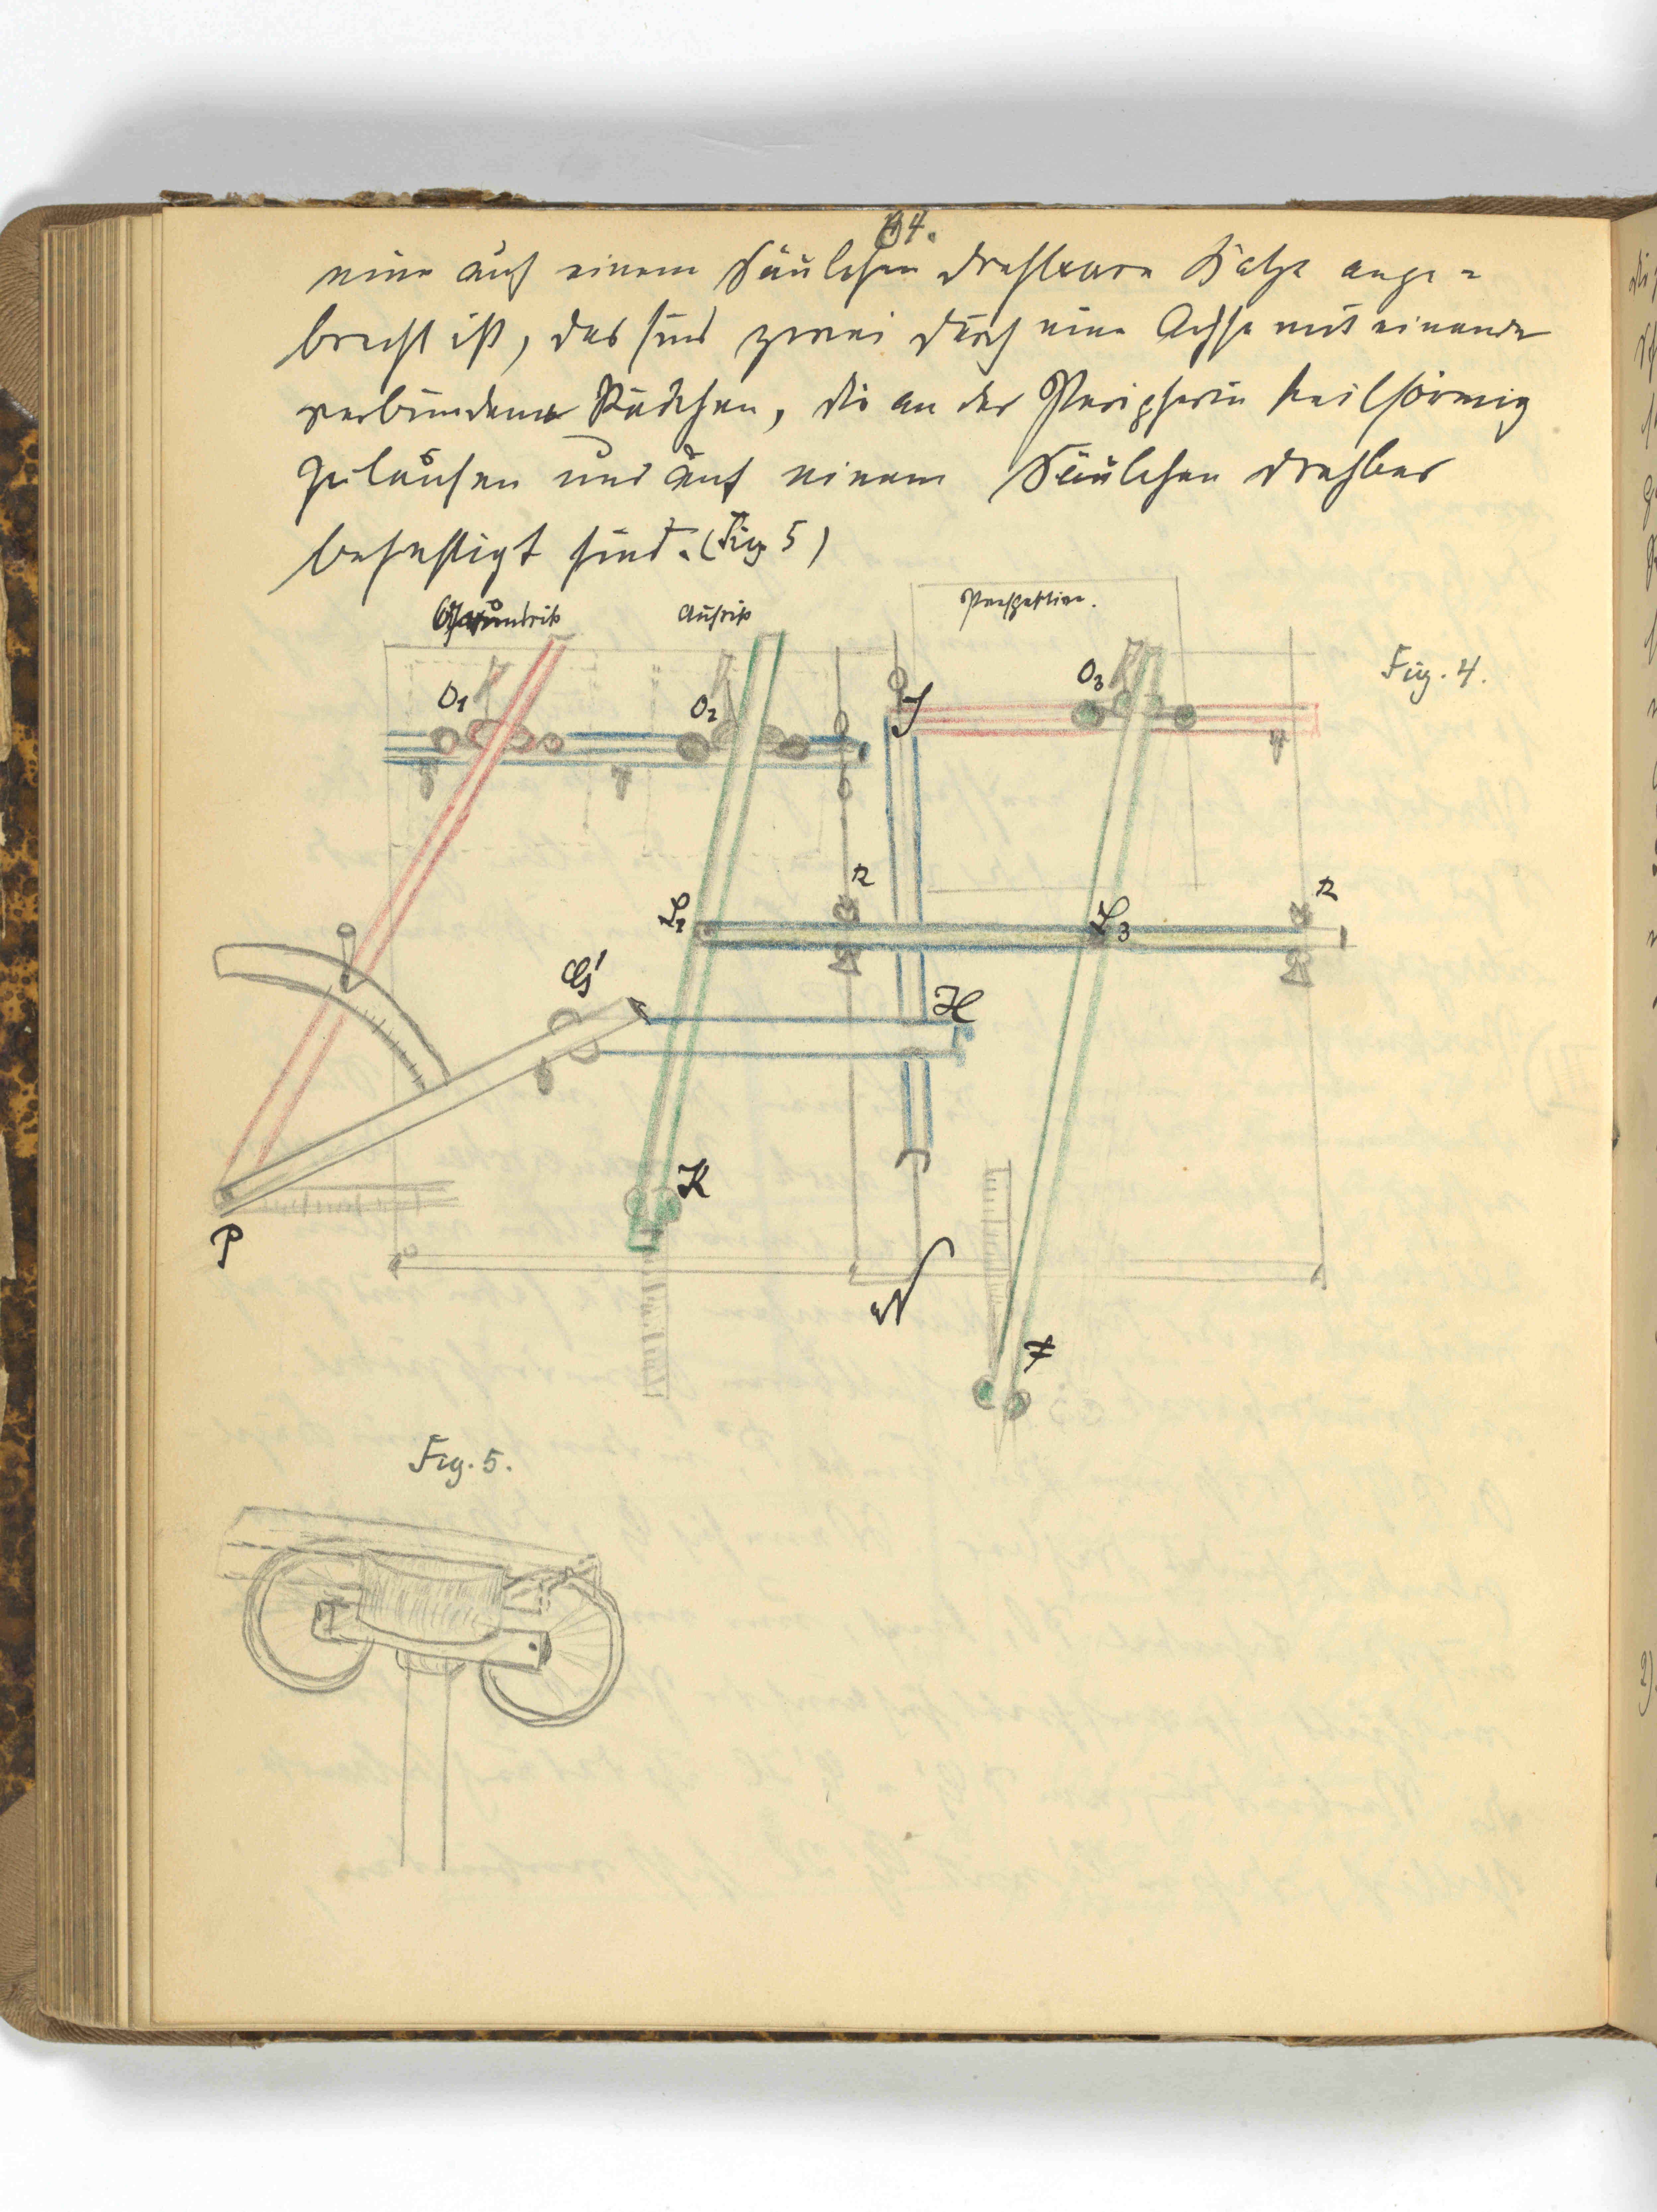 84.
eine auf einem Säulchen drehbare Katze ange=
bracht ist, das sind zwei durch eine Achse mit einander
verbundene Rädchen, die an der Peripherie keilförmig
zulaufen und auf einem Säulchen drehbar
befestigt sind. (Fig 5)
Grundriß Aufriß Perspektive.
Fig. 4.
O₁ O₂ J O₃
R R
L₂ L₃
G' H
K
P
N
F
Fig. 5.